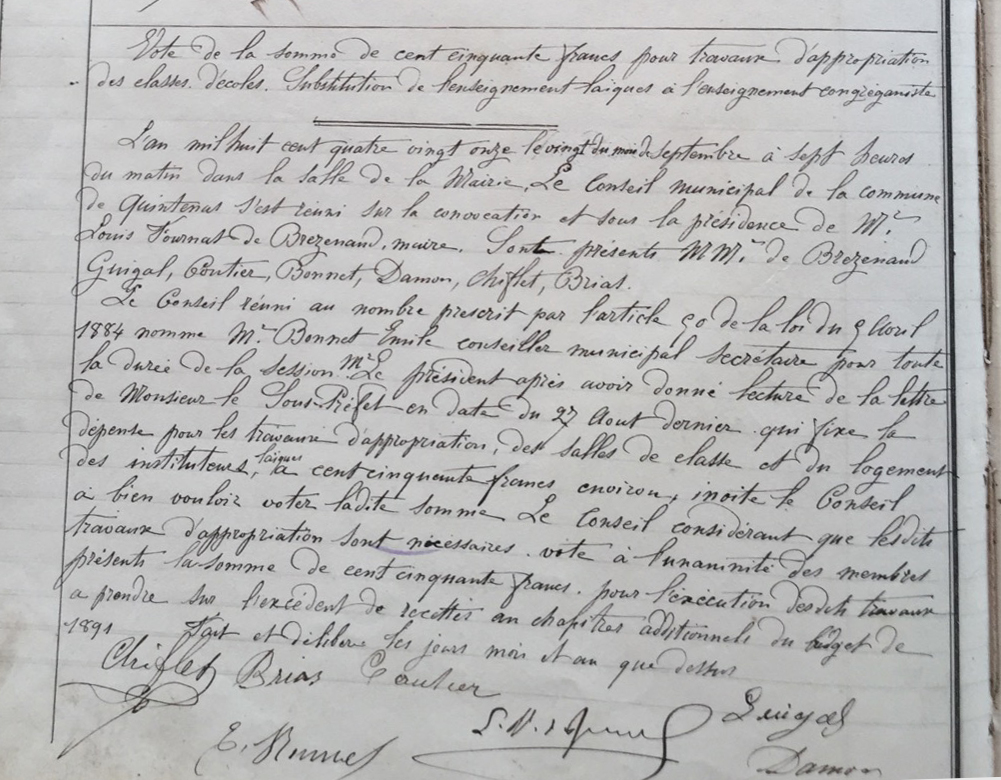 Vote de la somme de cent cinquante francs pour travaux d'appropriation
des classes d'écoles. Substitution de l'enseignement laiques à l'enseignement congréganiste
L'an mil huit cent quatre vingt onze le vingt du mois de septembre à sept heures
du matin dans la salle de la Mairie, Le Conseil municipal de la commune
de Quintenas s'est réuni sur la convocation et sous la présidence de Mr
Louis Fournat de Brézenaud, maire. Sont présents MMrs de Brezenaud
Guigal, Coutier, Bonnet, Damon, Chiflet, Brias.
Le Conseil réuni au nombre prescrit par l'article 50 de la loi du 5 Avril
1884 nomme Mr Bonnet Emile conseiller municipal secrétaire pour toute
la durée de la session. Mr Le président après avoir donné lecture de la lettre
de Monsieur le Sous-Préfet en date du 27 Aout dernier qui fixe la
dépense pour les travaux d'appropriation, des salles de classe et du logement
des instituteurs, laiques à cent cinquante francs environ, invite le Conseil
à bien vouloir voter ladite somme Le Conseil considérant que lesdits
travaux d'appropriation sont nécessaires. vote à l'unaninité des membres
présents la somme de cent cinquante francs. pour l'execution desdits travaux
a prendre sur l'excédent de recettes au chapitres additionnels du budget de
1891 Fait et délibéré les jours mois et an que dessus
Chiflet Brias Coutier
Guigal
E. Bonnet
Damon